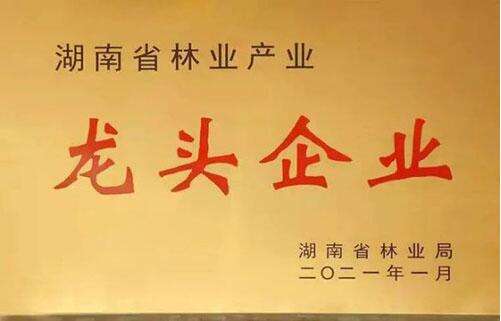 湖南省林业产业
龙头企业
湖南省林业局
二〇二一年一月